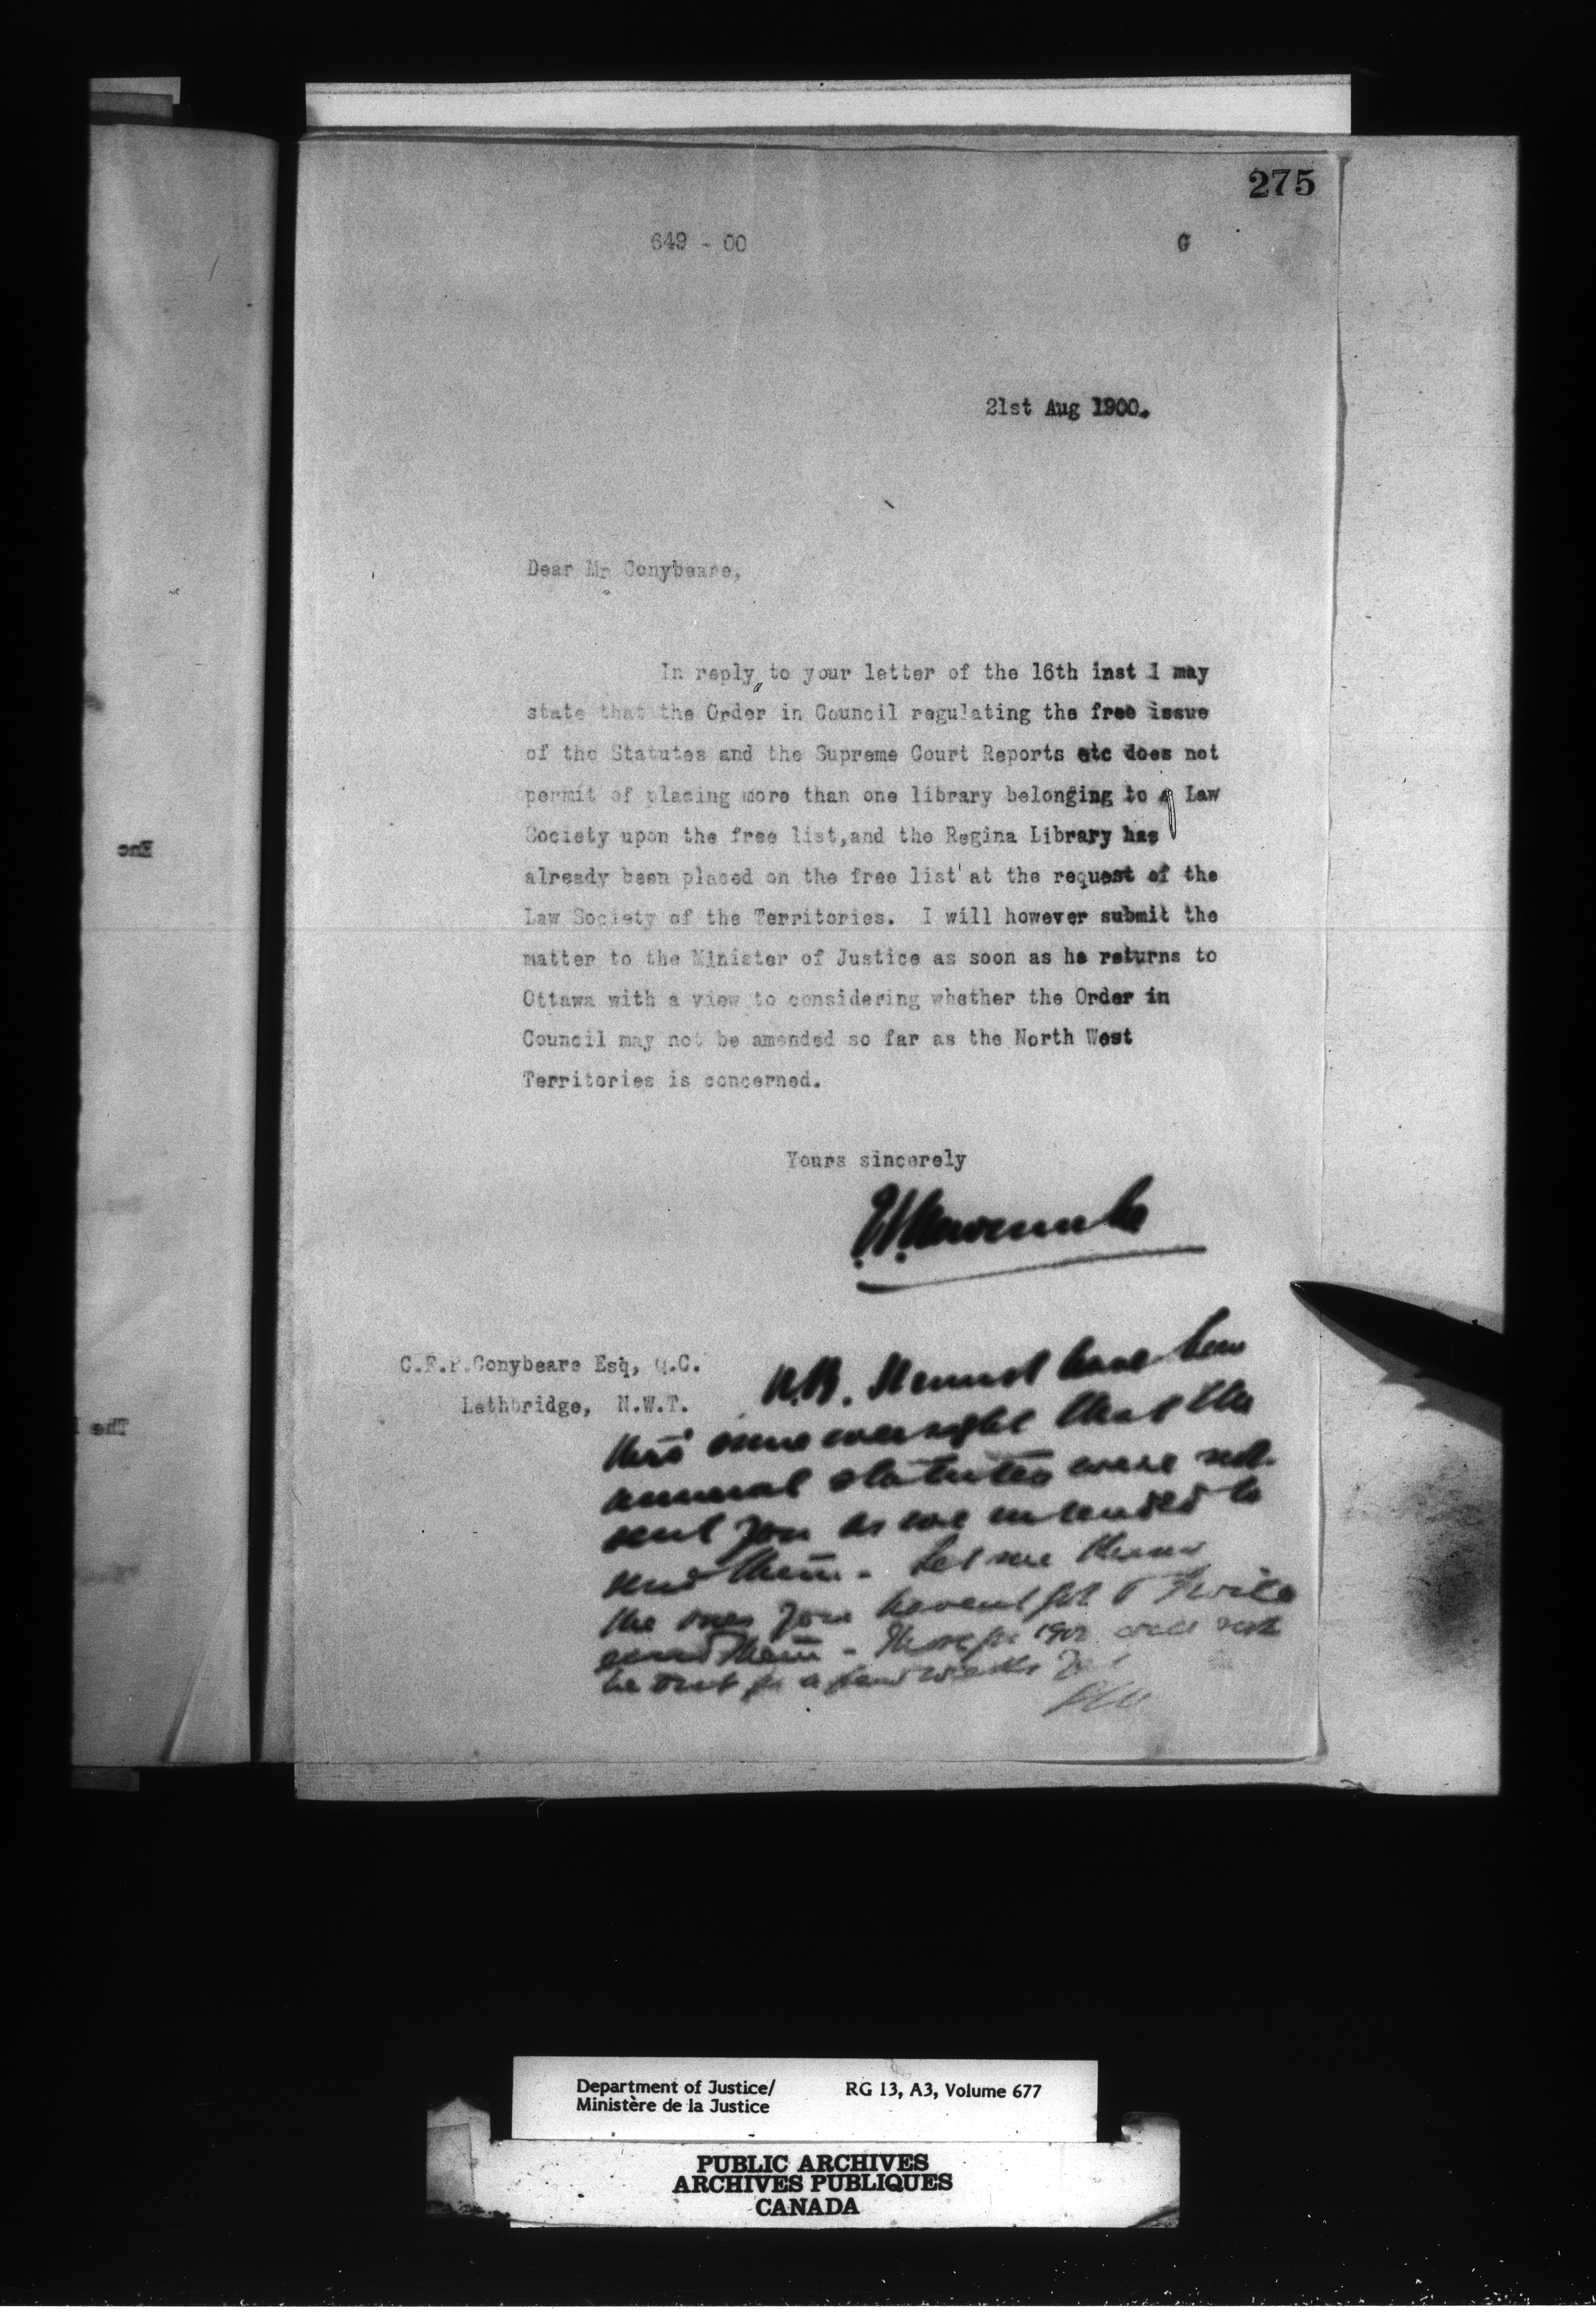 275
649 - 00
G
21st Aug 1900.
Dear Mr Conybeare,
In reply to your letter of the 16th inst I may
state that the Order in Council regulating the free issue
of the Statutes and the Supreme Court Reports etc does not
permit of placing more than one library belonging to a Law
Society upon the free list,and the Regina Library has
already been placed on the free list at the request of the
Law Society of the Territories. I will however submit the
matter to the Minister of Justice as soon as he returns to
Ottawa with a view to considering whether the Order in
Council may not be amended so far as the North West
Territories is concerned.
Yours sincerely
E.L.Newcombe
C.F.P.Conybeare Esq, Q.C.
Lethbridge, N.W.T.
N.B. It must have been
thro' some oversight that the
annual statutes were not
sent you as we intended to
send them - Let me know
the ones you havent got & I will
send them - Those for 1900 will not
be out for a few weeks
Enc
The
Department of Justice/
Ministère de la Justice
RG 13, A3, Volume 677
PUBLIC ARCHIVES
ARCHIVES PUBLIQUES
CANADA